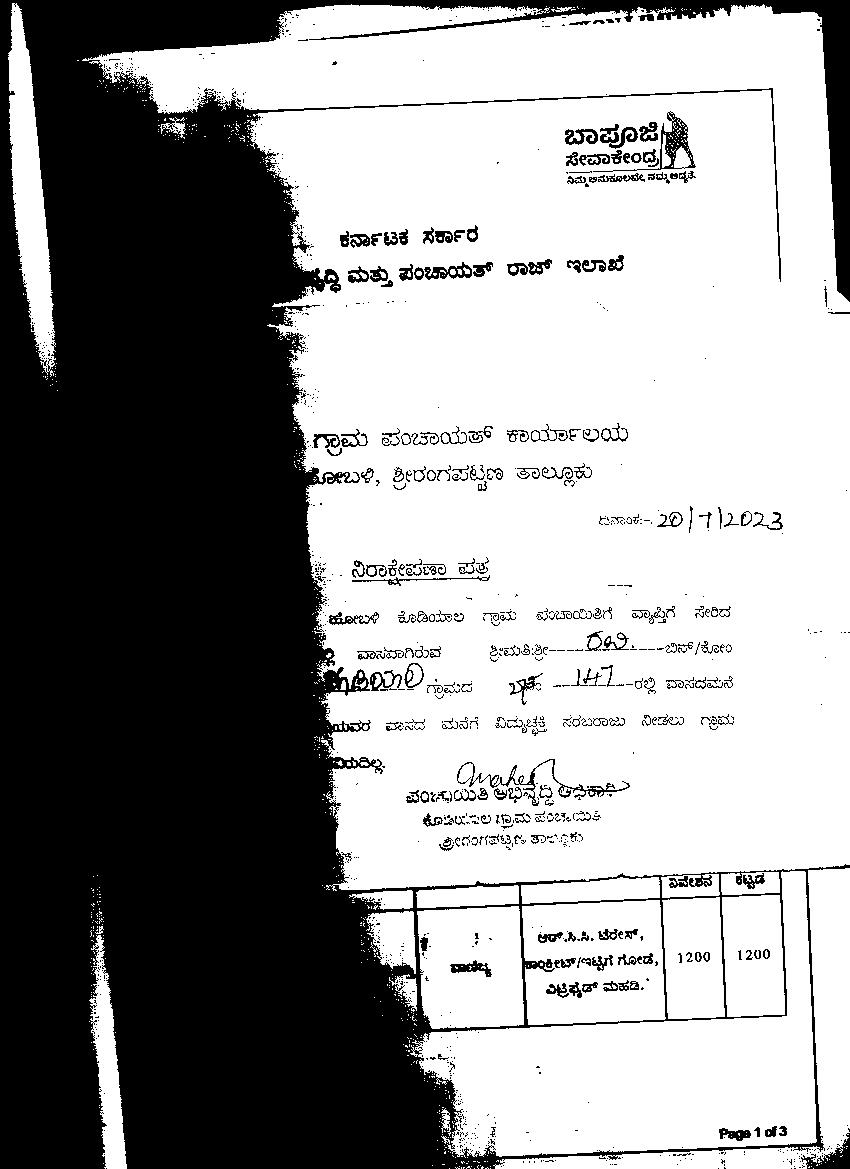 ಬಾಪೂಜಿ
ಸೇವಾಕೇಂದ್ರ
ಕರ್ನಾಟಕ ಸರ್ಕಾರ
ಮತ್ತು ಪಂಚಾಯತ್ ರಾಜ್ ಇಲಾಖೆ
ಗ್ರಾಮ ಪಂಚಾಯತ್ ಕಾರ್ಯಾಲಯ
ಹೋಬಳಿ, ಶ್ರೀರಂಗಪಟ್ಟಣ ತಾಲ್ಲೂಕು
ದಿನಾಂಕ:- 20/7/2023
ನಿರಾಕ್ಷೇಪಣಾ ಪತ್ರ
ಹೋಬಳಿ ಕೊಡಿಯಾಲ ಗ್ರಾಮ ಪಂಚಾಯಿತಿಗೆ ವ್ಯಾಪ್ತಿಗೆ ಸೇರಿದ
ವಾಸವಾಗಿರುವ ಶ್ರೀಮತಿ/ಶ್ರೀ ರವಿ ಬಿನ್/ಕೋಂ
ಗ್ರಾಮದ 147 ರಲ್ಲಿ ವಾಸದಮನೆ
ವಾಸದ ಮನೆಗೆ ವಿದ್ಯುಚ್ಛಕ್ತಿ ಸರಬರಾಜು ನೀಡಲು ಗ್ರಾಮ
ಪಂಚಾಯಿತಿ ಅಭಿವೃದ್ಧಿ ಅಧಿಕಾರಿ
ಕೊಡಿಯಾಲ ಗ್ರಾಮ ಪಂಚಾಯಿತಿ
ಶ್ರೀರಂಗಪಟ್ಟಣ ತಾಲ್ಲೂಕು
ನಿವೇಶನ ಕಟ್ಟಡ
ವಾಣಿಜ್ಯ
ಆರ್.ಸಿ.ಸಿ. ಟೆರೇಸ್,
ಕಾಂಕ್ರೀಟ್/ಇಟ್ಟಿಗೆ ಗೋಡೆ,
ವಿಟ್ರಿಫೈಡ್ ಮಹಡಿ.
1200 1200
Page 1 of 3